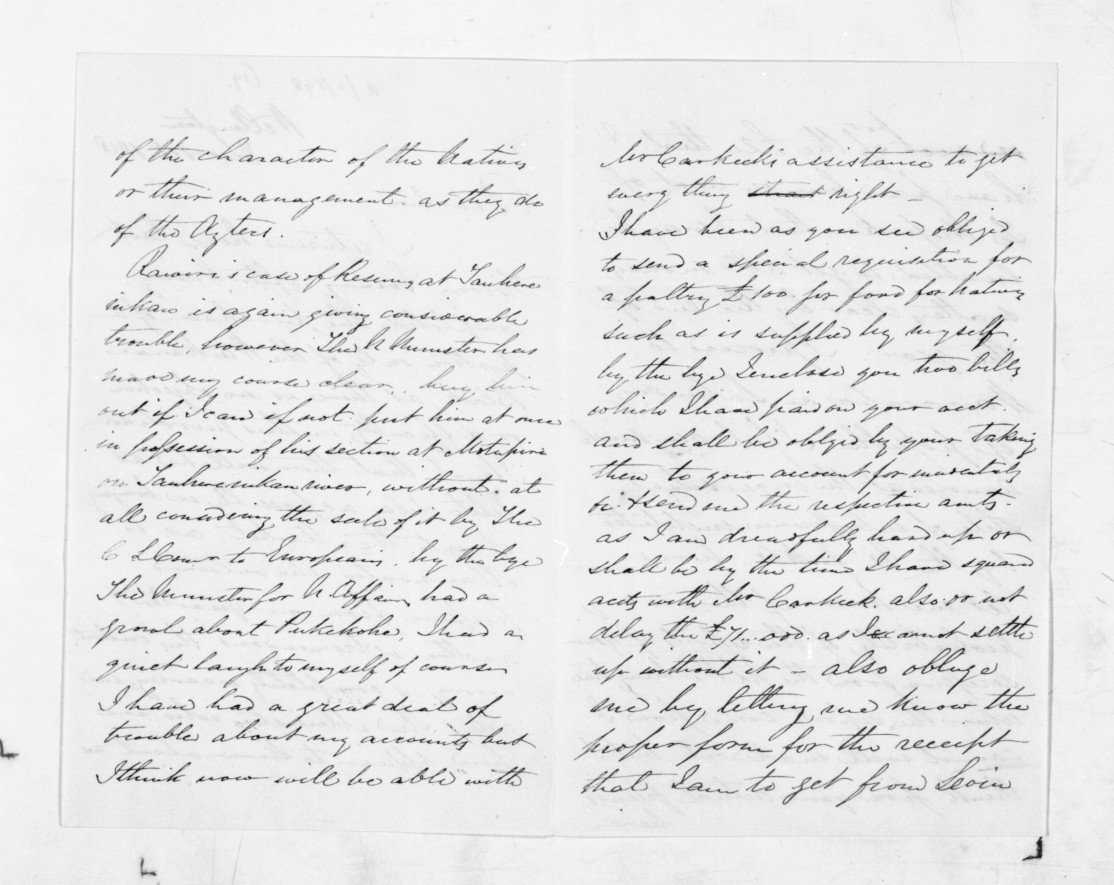 of the character of the Natives
or their management. as they do
of the Aztecs.
Rawiri's case of Reserves at Tauhere
nikau is again giving considerable
trouble, however The N Minister has
made my course clear, buy him
out if I can if not put him at once
in possession of his section at
on Tauherenikau river, without. at
all considering the sale of it by The
C L Comr to Europeans. by the bye
The Minister for N. Affairs had a
growl about Pukekohe, I had a
quiet laugh to myself of course
I have had a great deal of
trouble about my accounts but
I think now will be able with
Mr Carkeek's assistance to get
every thing right –
I have been as you see obliged
to send a special requisition for
a paltry £100. for food for Natives
such as is supplied by myself.
by the bye I enclose you two bills
which I have paid on your acct.
and shall be obliged by your taking
them to your account for incidentals
or. & send me the respective amts.
as I am dreadfully hard up or
shall be by the time I have squared
accts with Mr Carkeek. also. do not
delay the as I cannot settle
up without it – also obluge
me by letting me know the
proper form for the receipt
that I am to get from Levin